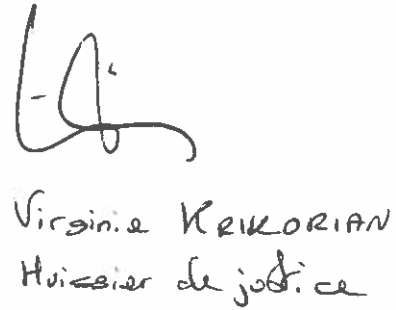 Virginie KRIKORIAN
Huissier de justice